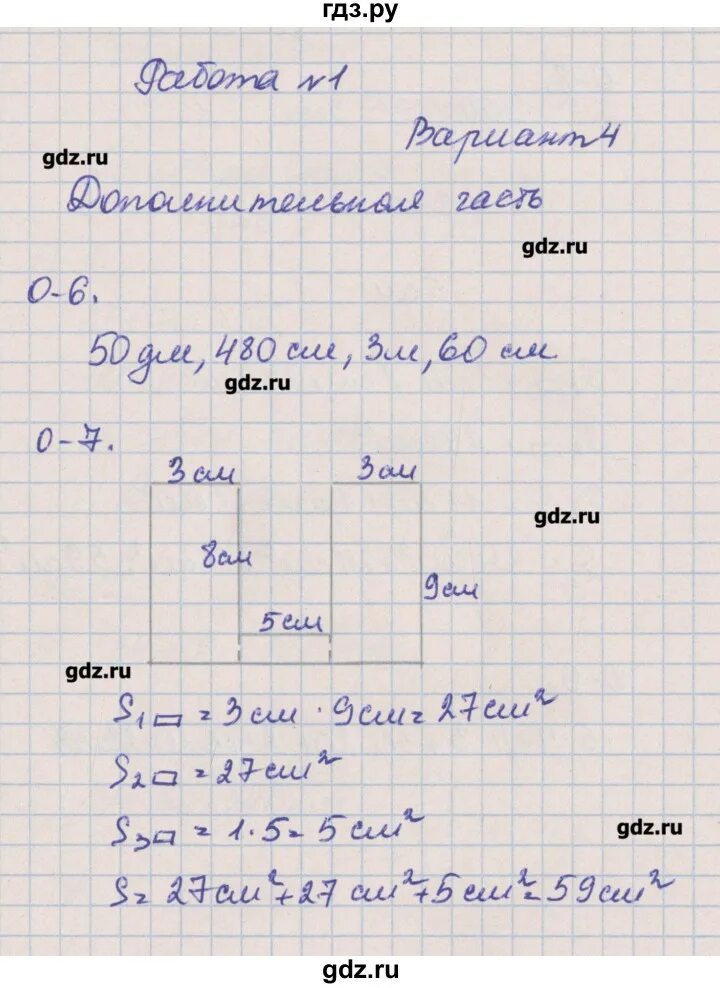 гдз.ру
Работа №1
Вариант 4
gdz.ru
Дополнительная часть
gdz.ru
О-6.
50 дм, 480 см, 3м, 60 см
gdz.ru
О-7.
3 см 3 см
gdz.ru
8см
9см
5 см
gdz.ru
S1▭ = 3 см · 9см = 27 см²
S2▭ = 27 см²
S3▭ = 1·5 = 5 см²
gdz.ru
S = 27 см² + 27 см² + 5 см² = 59 см²
gdz.ru